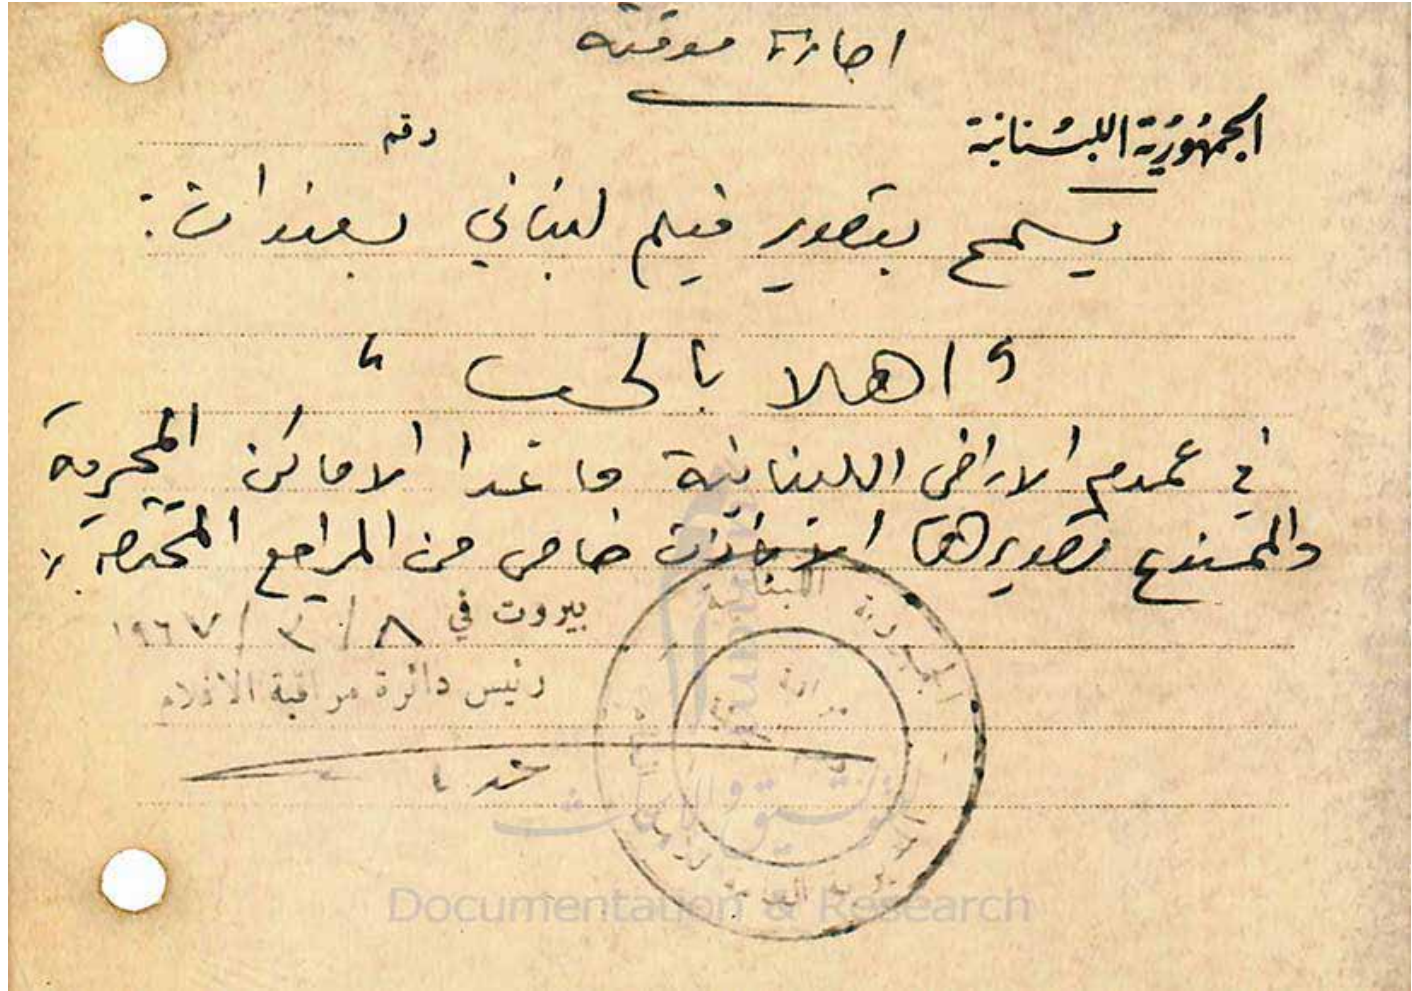 اجازة موقتة
الجمهورية اللبنانية
رقم
يسمح بتصوير فيلم لبناني بعنوان :
" اهلا بالحب "
في عموم الاراضي اللبنانية ما عدا الاماكن المحرمة
والممنوع تصويرها الا باذن خاص من المراجع المختصة /
بيروت في ٨/٣/١٩٦٧
رئيس دائرة مراقبة الافلام
الجمهورية اللبنانية
التوثيق والأبحاث
Documentation & Research